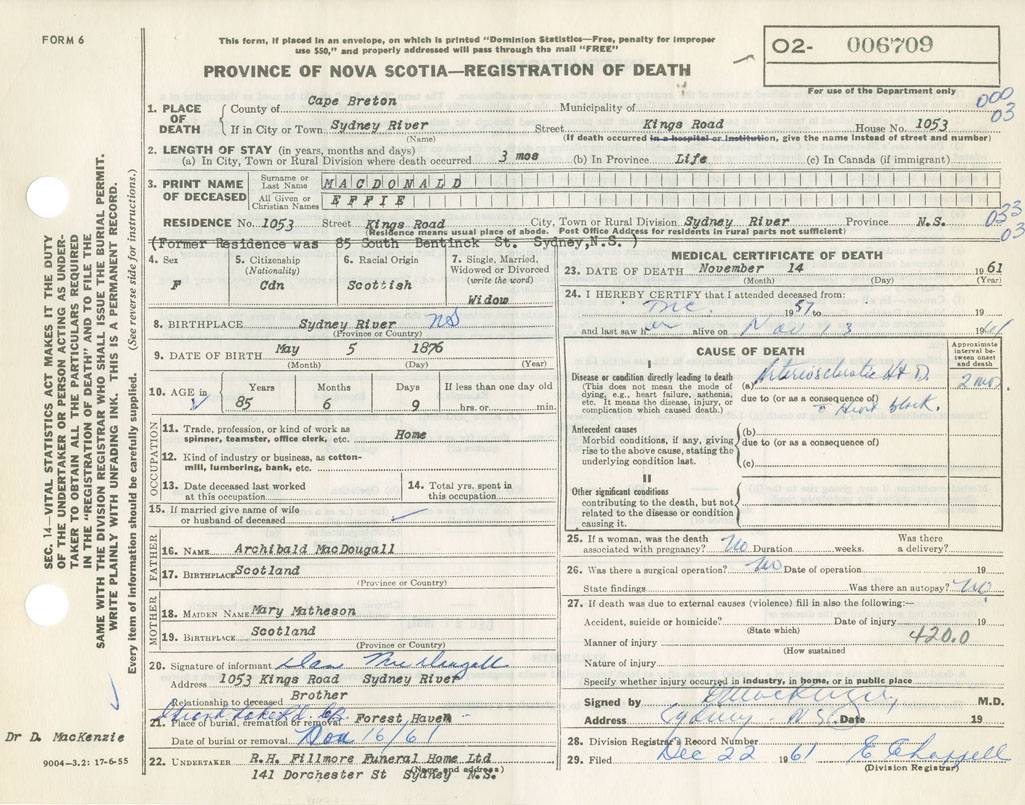 FORM 6
This form, if placed in an envelope, on which is printed "Dominion Statistics—Free, penalty for improper
use $50," and properly addressed will pass through the mail "FREE"
PROVINCE OF NOVA SCOTIA—REGISTRATION OF DEATH
02- 006709
For use of the Department only
000
03
SEC. 14—VITAL STATISTICS ACT MAKES IT THE DUTY
OF THE UNDERTAKER OR PERSON ACTING AS UNDER-
TAKER TO OBTAIN ALL THE PARTICULARS REQUIRED
IN THE "REGISTRATION OF DEATH" AND TO FILE THE
SAME WITH THE DIVISION REGISTRAR WHO SHALL ISSUE THE BURIAL PERMIT.
WRITE PLAINLY WITH UNFADING INK. THIS IS A PERMANENT RECORD.
Every item of information should be carefully supplied. (See reverse side for instructions.)
1. PLACE OF DEATH
County of Cape Breton Municipality of
If in City or Town Sydney River Street Kings Road House No. 1053
(Name) (If death occurred in a hospital or institution, give the name instead of street and number)
2. LENGTH OF STAY (in years, months and days)
(a) In City, Town or Rural Division where death occurred 3 mos (b) In Province Life (c) In Canada (if immigrant)
3. PRINT NAME OF DECEASED
Surname or Last Name MACDONALD
All Given or Christian Names EFFIE
RESIDENCE No. 1053 Street Kings Road City, Town or Rural Division Sydney River Province N.S.
033
03
(Residence means usual place of abode. Post Office Address for residents in rural parts not sufficient)
(Former Residence was 85 South Bentinck St. Sydney, N.S. )
4. Sex
F
5. Citizenship
(Nationality)
Cdn
6. Racial Origin
Scottish
7. Single, Married,
Widowed or Divorced
(write the word)
Widow
8. BIRTHPLACE Sydney River NS
(Province or Country)
9. DATE OF BIRTH May 5 1876
(Month) (Day) (Year)
10. AGE in
Years Months Days If less than one day old
85 6 9 hrs. or min.
OCCUPATION
11. Trade, profession, or kind of work as
spinner, teamster, office clerk, etc. Home
12. Kind of industry or business, as cotton-
mill, lumbering, bank, etc.
13. Date deceased last worked
at this occupation
14. Total yrs. spent in
this occupation
15. If married give name of wife
or husband of deceased
FATHER
16. NAME Archibald MacDougall
17. BIRTHPLACE Scotland
(Province or Country)
MOTHER
18. MAIDEN NAME Mary Matheson
19. BIRTHPLACE Scotland
(Province or Country)
20. Signature of informant Dan MacDougall
Address 1053 Kings Road Sydney River
Relationship to deceased Brother
21. Place of burial, cremation or removal Forest Haven
Date of burial or removal 16/61
22. UNDERTAKER R.H. Fillmore Funeral Home Ltd
141 Dorchester St Sydney N.S.
(Name and address)
Dr D. MacKenzie
9004—3.2: 17-6-55
MEDICAL CERTIFICATE OF DEATH
23. DATE OF DEATH November 14 1961
(Month) (Day) (Year)
24. I HEREBY CERTIFY that I attended deceased from:
1957 to 19
and last saw her alive on Nov 13 1961
CAUSE OF DEATH
Approximate interval between onset and death
I
Disease or condition directly leading to death
(This does not mean the mode of
dying, e.g., heart failure, asthenia,
etc. It means the disease, injury, or
complication which caused death.)
(a) Arteriosclerotic Ht D. 2 mos
due to (or as a consequence of)
Heart block.
Antecedent causes
Morbid conditions, if any, giving
rise to the above cause, stating the
underlying condition last.
(b)
due to (or as a consequence of)
(c)
II
Other significant conditions
contributing to the death, but not
related to the disease or condition
causing it.
25. If a woman, was the death
associated with pregnancy? No Duration weeks. Was there
a delivery?
26. Was there a surgical operation? No Date of operation 19
State findings Was there an autopsy? No
27. If death was due to external causes (violence) fill in also the following:—
Accident, suicide or homicide? Date of injury 19
(State which)
Manner of injury 420.0
(How sustained
Nature of injury
Specify whether injury occurred in industry, in home, or in public place
Signed by D MacKenzie M.D.
Address Sydney N.S. Date 19
28. Division Registrar's Record Number
29. Filed Dec 22 1961 E Chappell
(Division Registrar)